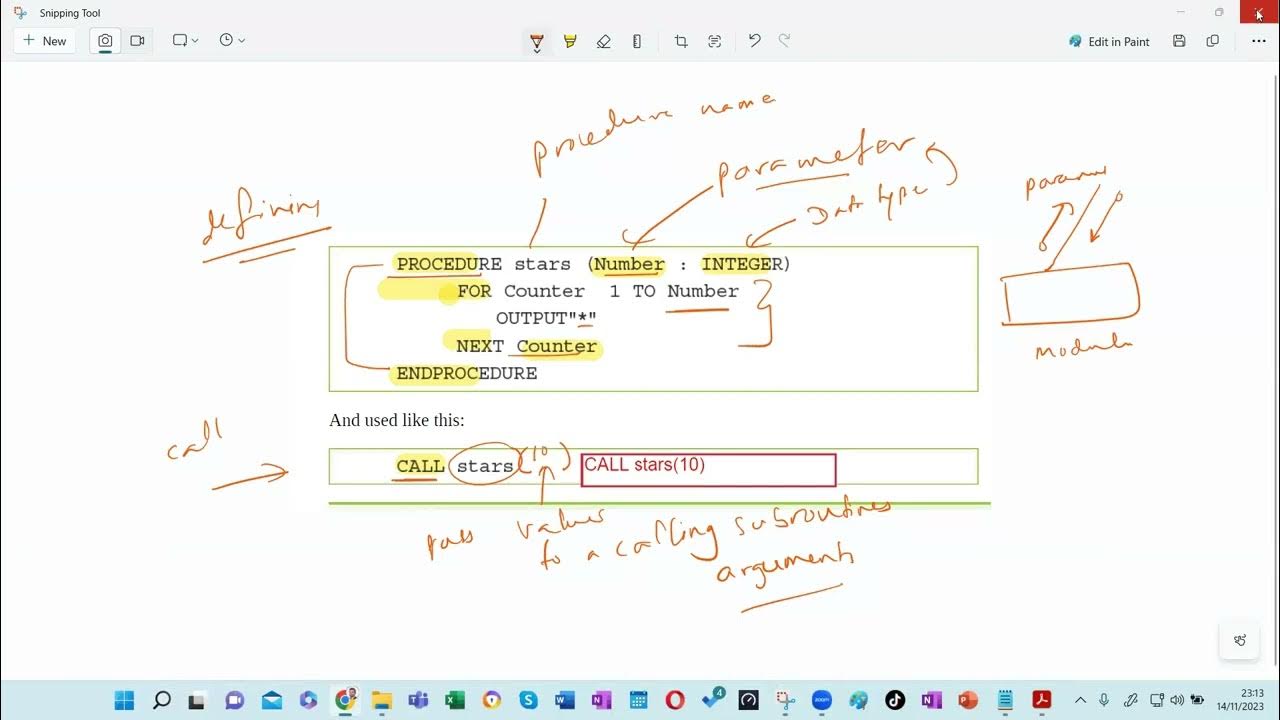 Snipping Tool
New
Edit in Paint
procedure name
parameter
Data type
param
defining
PROCEDURE stars (Number : INTEGER)
FOR Counter 1 TO Number
OUTPUT"*"
NEXT Counter
ENDPROCEDURE
And used like this:
call
CALL stars (10)
CALL stars(10)
pass values
to a calling subroutines
arguments
4
23:13
14/11/2023